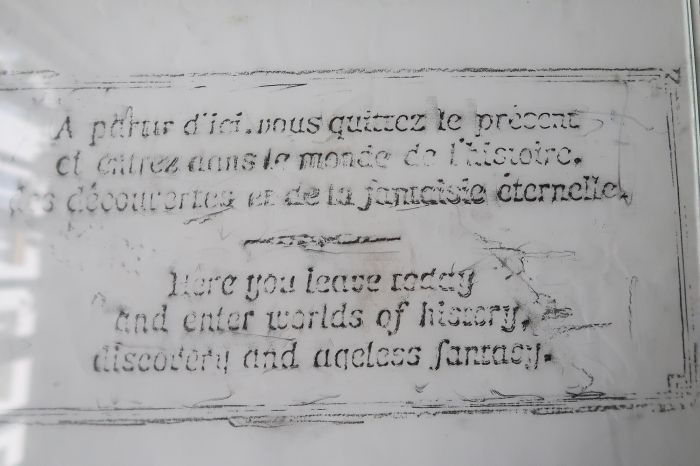 A partir d'ici, vous quittez le présent
et entrez dans le monde de l'histoire,
des découvertes et de la fantaisie éternelle.
Here you leave today
and enter worlds of history,
discovery and ageless fantasy.